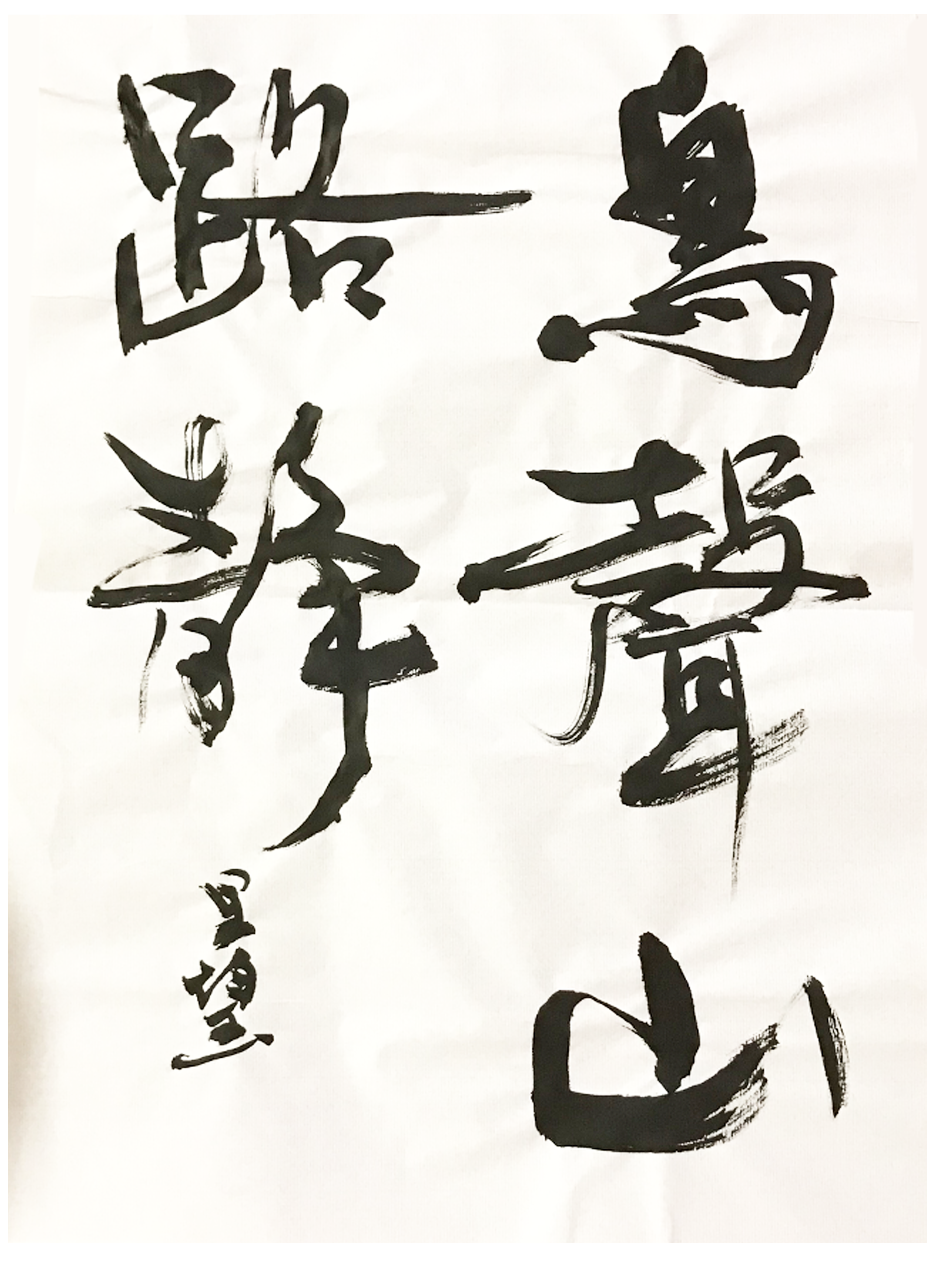 鳥聲山
路靜